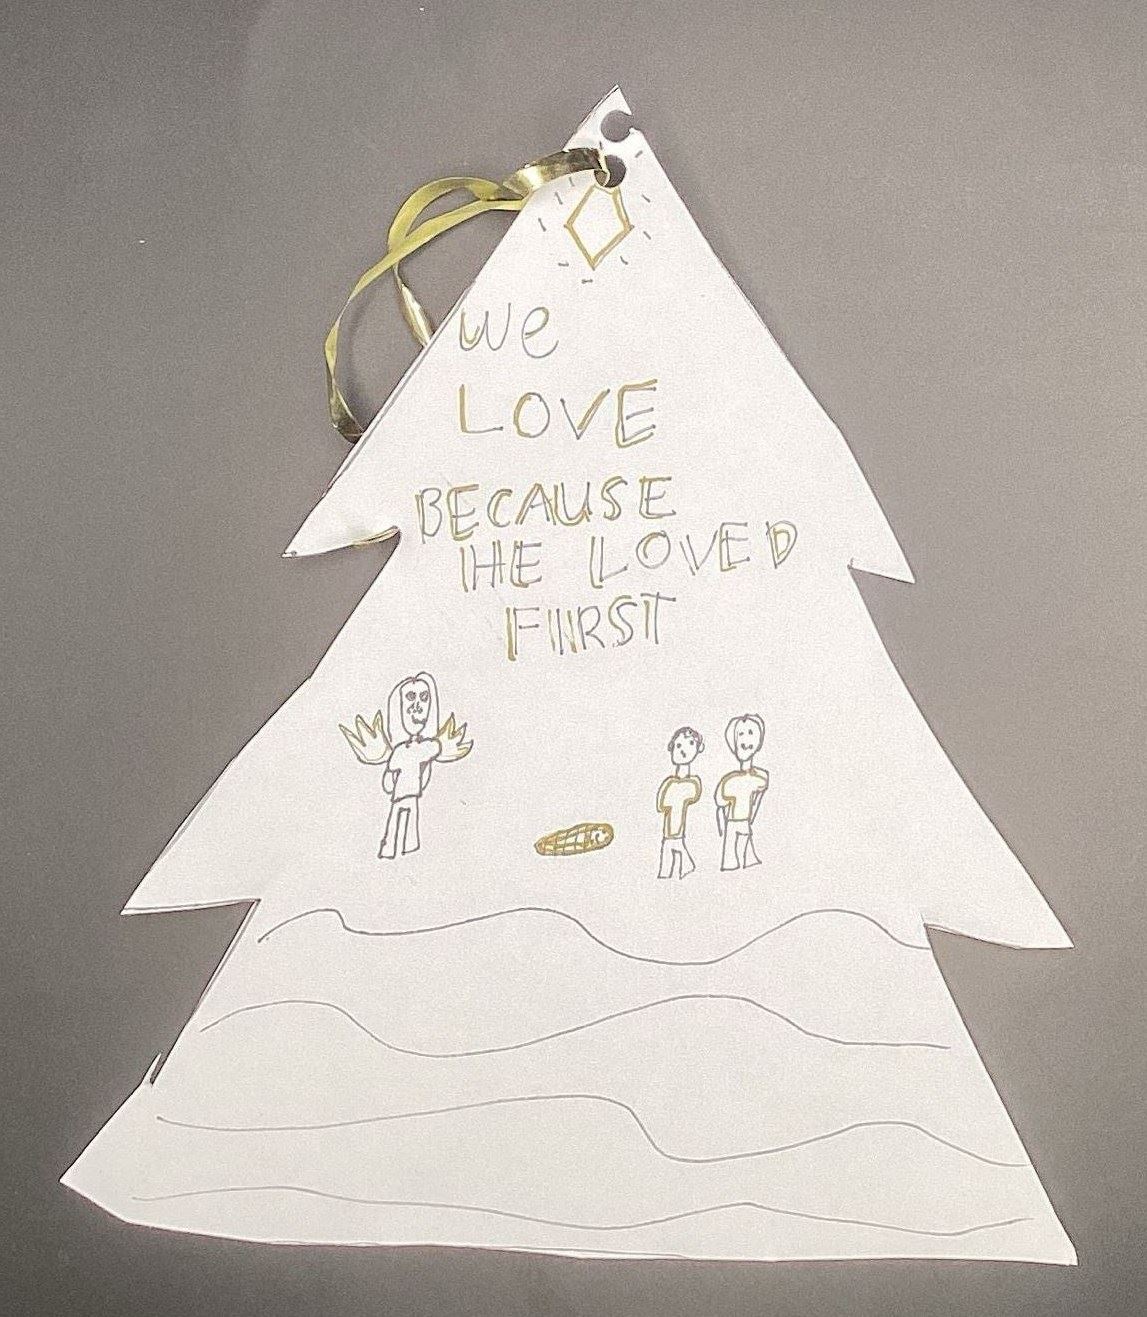 We
LOVE
BECAUSE
HE LOVED
FIRST